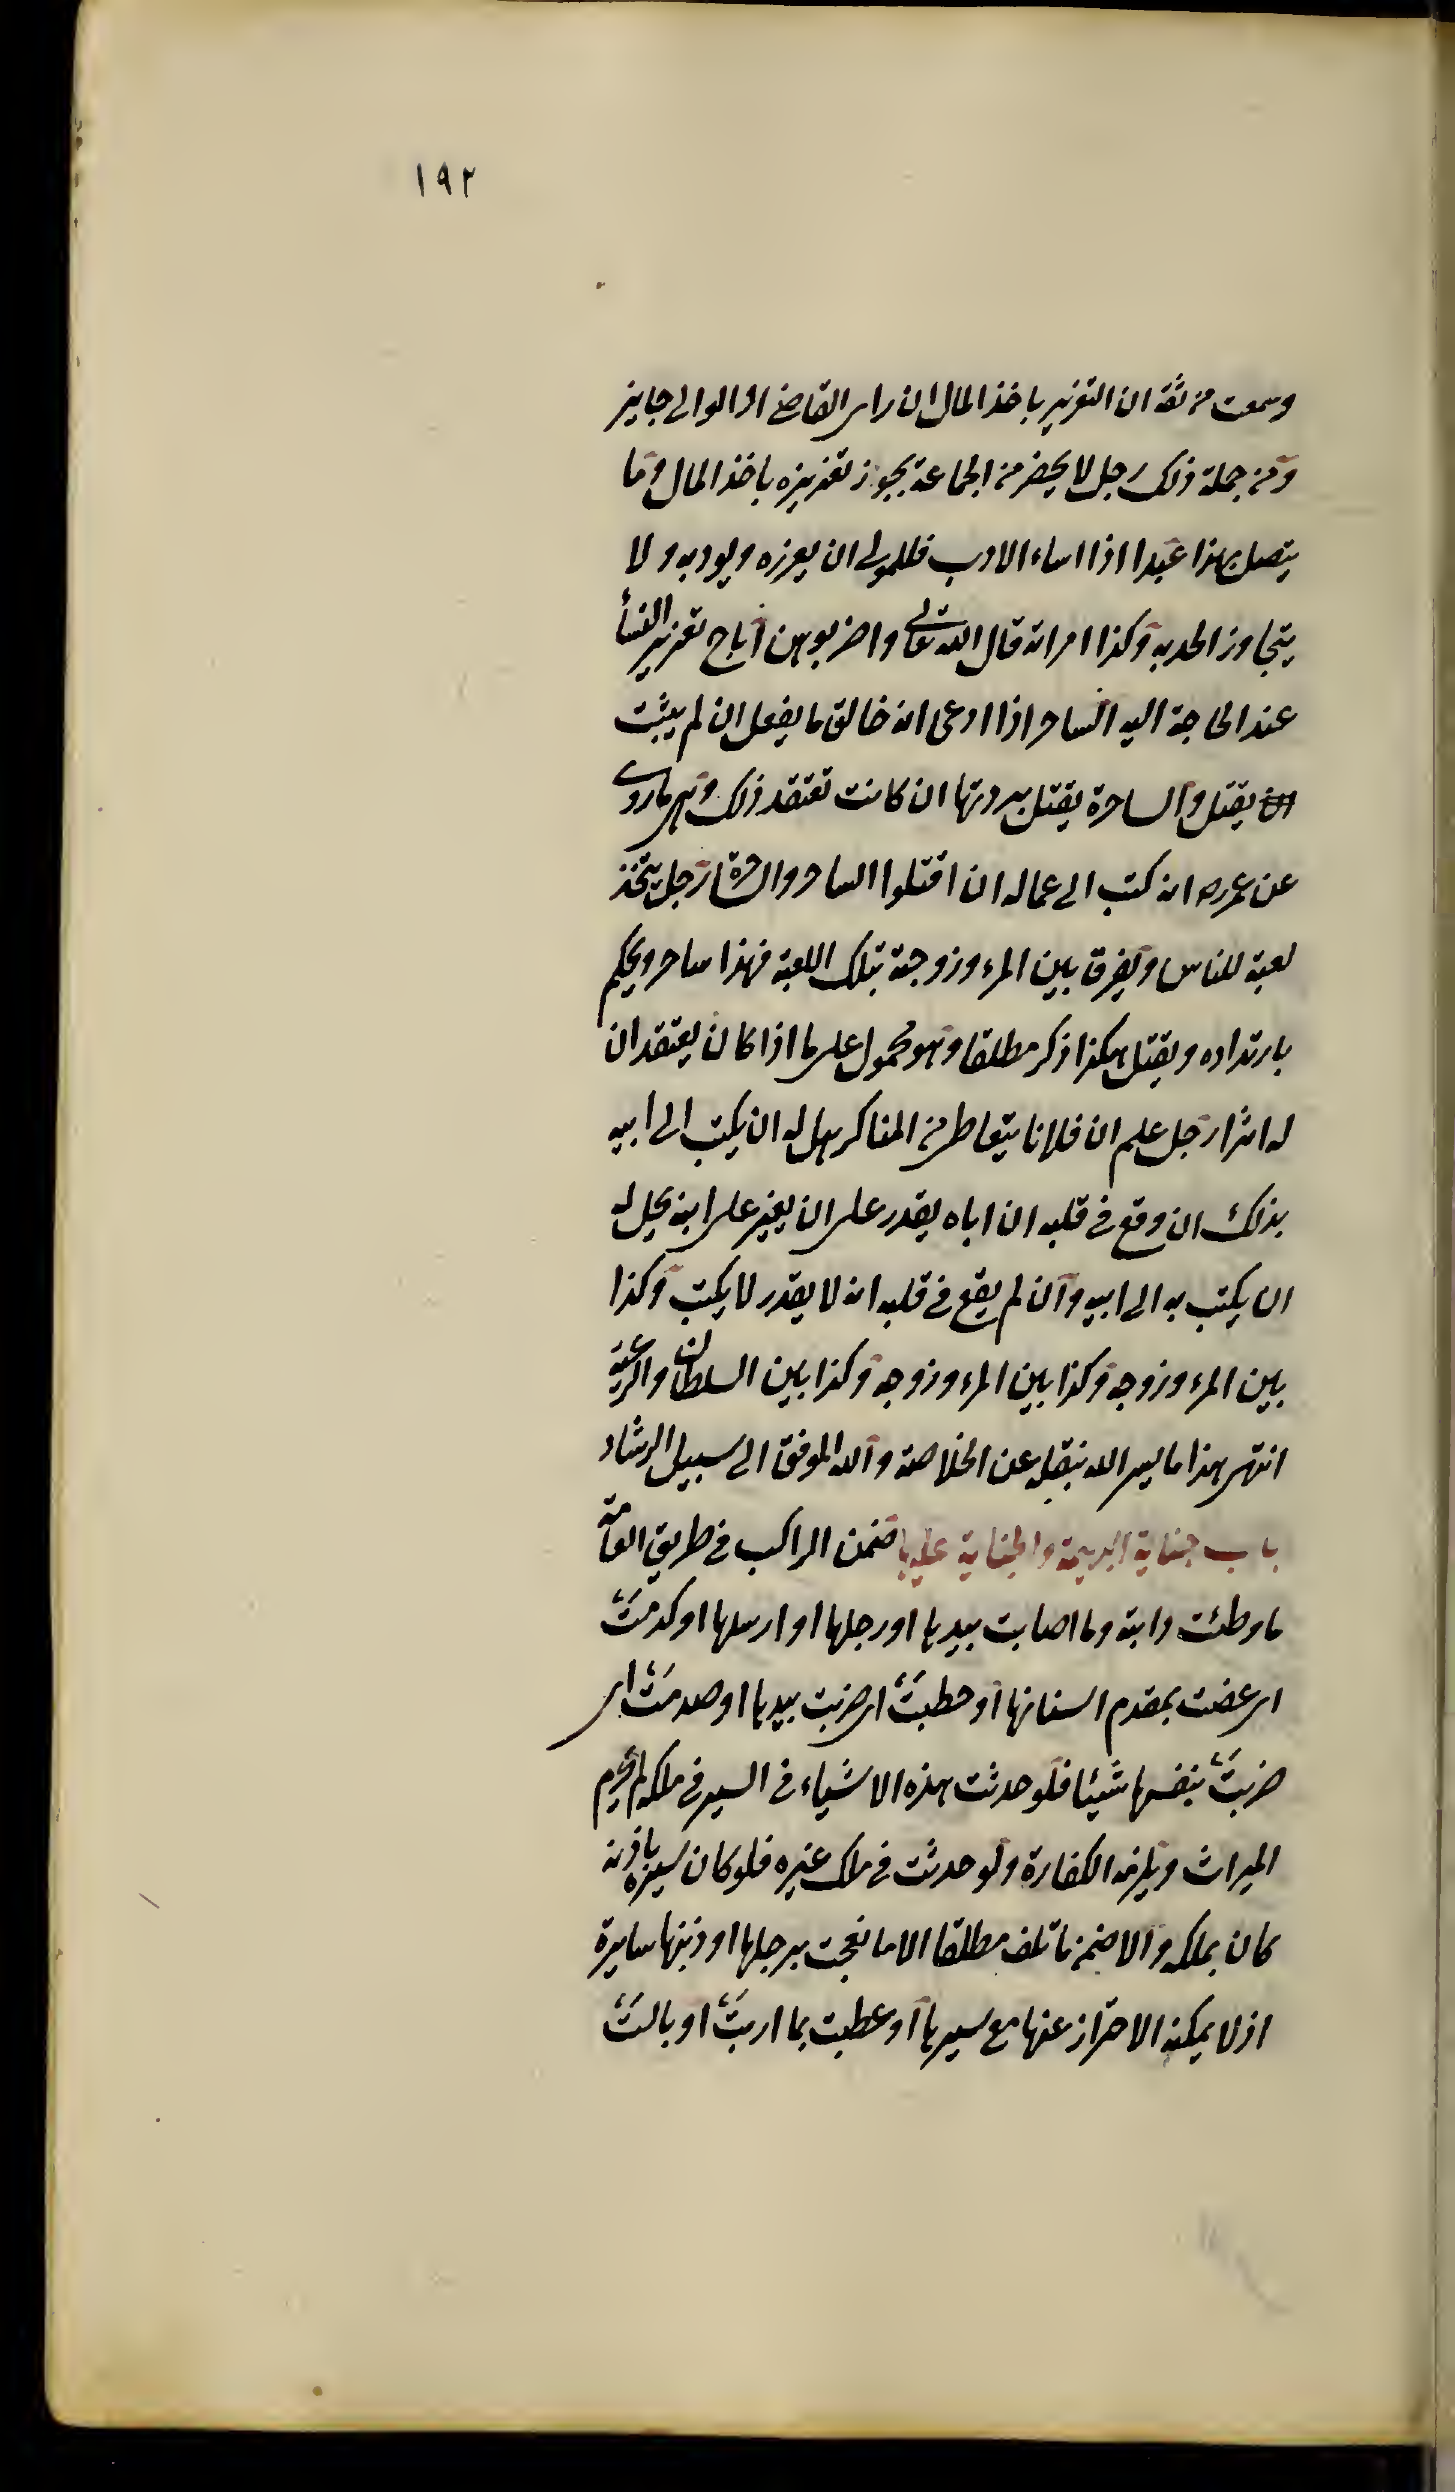 ١٩٢
وسمعت من ثقة ان التعزير باخذ المال ان راى القاضى او الوالى جايز
ومن جملة ذلك رجل لا يحضر من الجماعة يجوز تعزيره باخذ المال وما
يتصل بهذا عبدا اذا اساء الادب فللمولى ان يعزره ويودبه ولا
يتجاوز الحد به وكذا امراته قال الله تعالى واضربوهن اباح تعزير النسأ
عند الحاجة اليه الساحر اذا ادعى انه خالق ما يفعل ان لم يثبت
يقتل والساحرة يقتل بردتها ان كانت تعتقد ذلك وهى ماروى
عن عمر رضه انه كتب الى عماله ان اقتلوا الساحر والساحرة رجل يتخذ
لعبة للناس ويفرق بين المرء وزوجته بتلك اللعبة فهذا ساحر ويحكم
بارتداده ويقتل هكذا ذكر مطلقا وهو محمول على ما اذا كان يعتقد ان
له اثرا رجل علم ان فلانا يتعاطى من المناكر هل له ان يكتب الى ابيه
بذلك ان وقع فى قلبه ان اباه يقدر على ان يغير على ابنه يحل له
ان يكتب به الى ابيه وان لم يقع فى قلبه انه لا يقدر لا يكتب وكذا
بين المرء وزوجه وكذا بين المرء وزوجه وكذا بين السلطان والرعية
انتهى هذا ما يسر الله بنقله عن الخلاصة والله الموفق الى سبيل الرشاد
باب جناية البهيمة والجناية عليها ضمن الراكب فى طريق العامة
ما وطئت دابته وما اصابت بيدها او رجلها او ارسلها او كدمت
اى عضت بمقدم اسنانها او حطبت اى ضربت بيدها او صدمت اى
ضربت بنفسها شيئا فلو حدثت هذه الاشياء فى السير فى ملكه لم يحرم
الميراث ويلزمه الكفارة ولو حدثت فى ملك غيره فلو كان سيره باذنه
كان بملكه والا ضمن ما تلف مطلقا الا ما نفحت برجلها او ذنبها سايرة
اذ لا يمكنه الاحتراز عنها مع سيرها او عطبت بما اربت او بالت